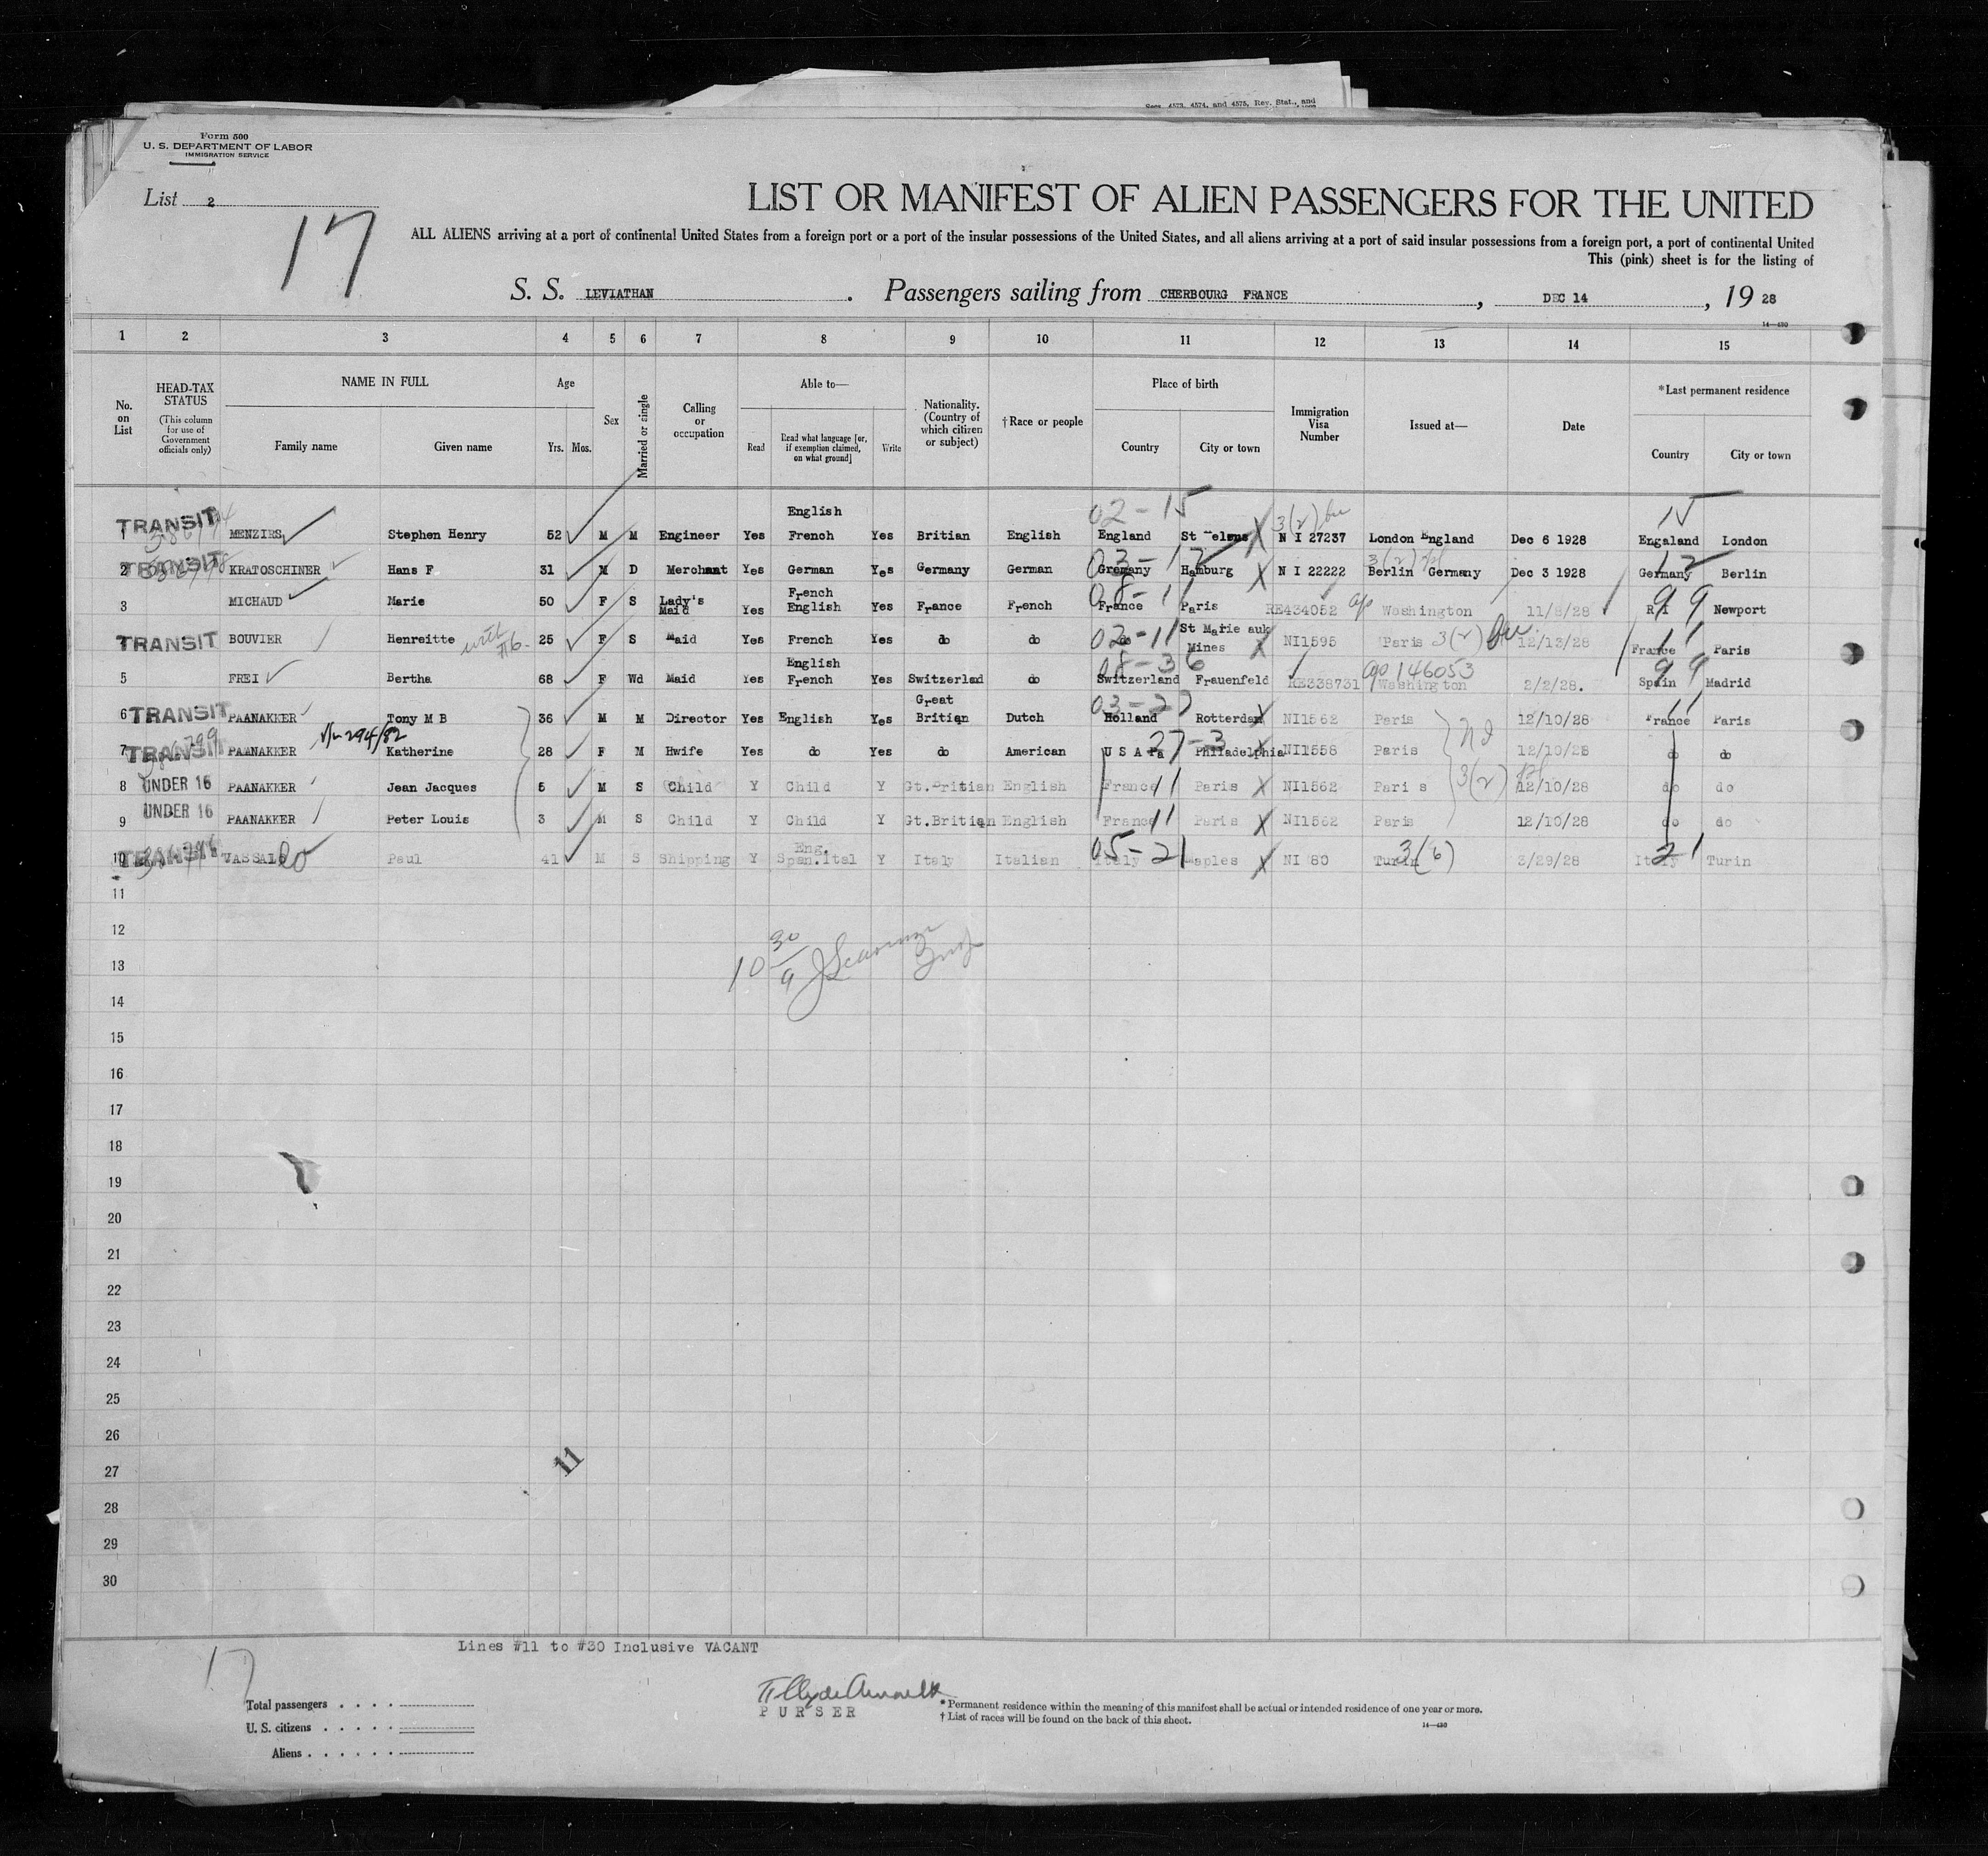 Secs. 4573, 4574, and 4575, Rev. Stat., and
Form 500
U. S. DEPARTMENT OF LABOR
IMMIGRATION SERVICE
List 2
17
LIST OR MANIFEST OF ALIEN PASSENGERS FOR THE UNITED
ALL ALIENS arriving at a port of continental United States from a foreign port or a port of the insular possessions of the United States, and all aliens arriving at a port of said insular possessions from a foreign port, a port of continental United
This (pink) sheet is for the listing of
S. S. LEVIATHAN . Passengers sailing from CHERBOURG FRANCE , DEC 14 , 19 28
14—430
1 2 3 4 5 6 7 8 9 10 11 12 13 14 15
No. on List
HEAD-TAX STATUS
(This column for use of Government officials only)
NAME IN FULL
Family name Given name
Age
Yrs. Mos.
Sex
Married or single
Calling or occupation
Able to—
Read
Read what language [or, if exemption claimed, on what ground]
Write
Nationality. (Country of which citizen or subject)
† Race or people
Place of birth
Country City or town
Immigration Visa Number
Issued at—
Date
*Last permanent residence
Country City or town
02-15 3(2) 15
1 TRANSIT MENZIRS Stephen Henry 52 M M Engineer Yes English French Yes Britian English England St Helens N I 27237 London England Dec 6 1928 Engaland London
03-12 3(2) 12
2 TRANSIT KRATOSCHINER Hans F 31 M D Merchant Yes German Yes Germany German Gremany Hamburg N I 22222 Berlin Germany Dec 3 1928 Germany Berlin
08-11 99
3 MICHAUD Marie 50 F S Lady's Maid Yes French English Yes France French France Paris RE434052 Washington 11/8/28 R I Newport
TRANSIT BOUVIER Henreitte with #6- 25 F S Maid Yes French Yes do do do 02-11 St Marie auk Mines NI1595 Paris 3(2) 12/13/28 France 11 Paris
08-36 146053 99
5 FREI Bertha 68 F Wd Maid Yes English French Yes Switzerlad do Switzerland Frauenfeld RE338731 Washington 2/2/28. Spain Madrid
03-27 11
6 TRANSIT PAANAKKER Tony M B 36 M M Director Yes English Yes Great Britian Dutch Holland Rotterdam NI1562 Paris 12/10/28 France Paris
294/82
7 TRANSIT PAANAKKER Katherine 28 F M Hwife Yes do Yes do American U S A Pa 27-3 Philadelphia NI1558 Paris 12/10/28 do do
8 UNDER 16 PAANAKKER Jean Jacques 5 M S Child Y Child Y Gt.Britian English France 11 Paris NI1562 Paris 3(2) 12/10/28 do do
9 UNDER 16 PAANAKKER Peter Louis 3 M S Child Y Child Y Gt.Britian English France 11 Paris NI1562 Paris 12/10/28 do do
10 TRANSIT VASSALLO Paul 41 M S Shipping Y Eng. Span.Ital Y Italy Italian Italy 05-21 Naples NI 80 Turin 3(6) 3/29/28 Italy 21 Turin
11
12
13
14
15
16
17
18
19
20
21
22
23
24
25
26
27
11
28
29
30
Lines #11 to #30 Inclusive VACANT
17
PURSER
Total passengers
U. S. citizens
Aliens
* Permanent residence within the meaning of this manifest shall be actual or intended residence of one year or more.
† List of races will be found on the back of this sheet.
14—430